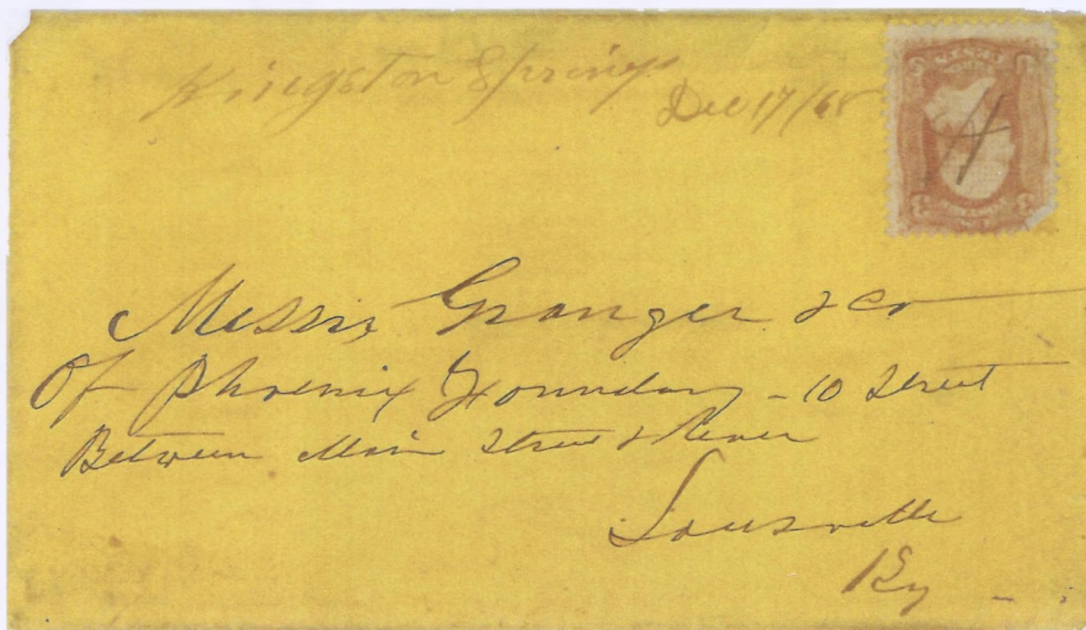 Kingston Springs
Dec 17/68
Messrs Granger & Co
Of Phoenix Foundary - 10 Street
Between Main Street & River
Louisville
Ky